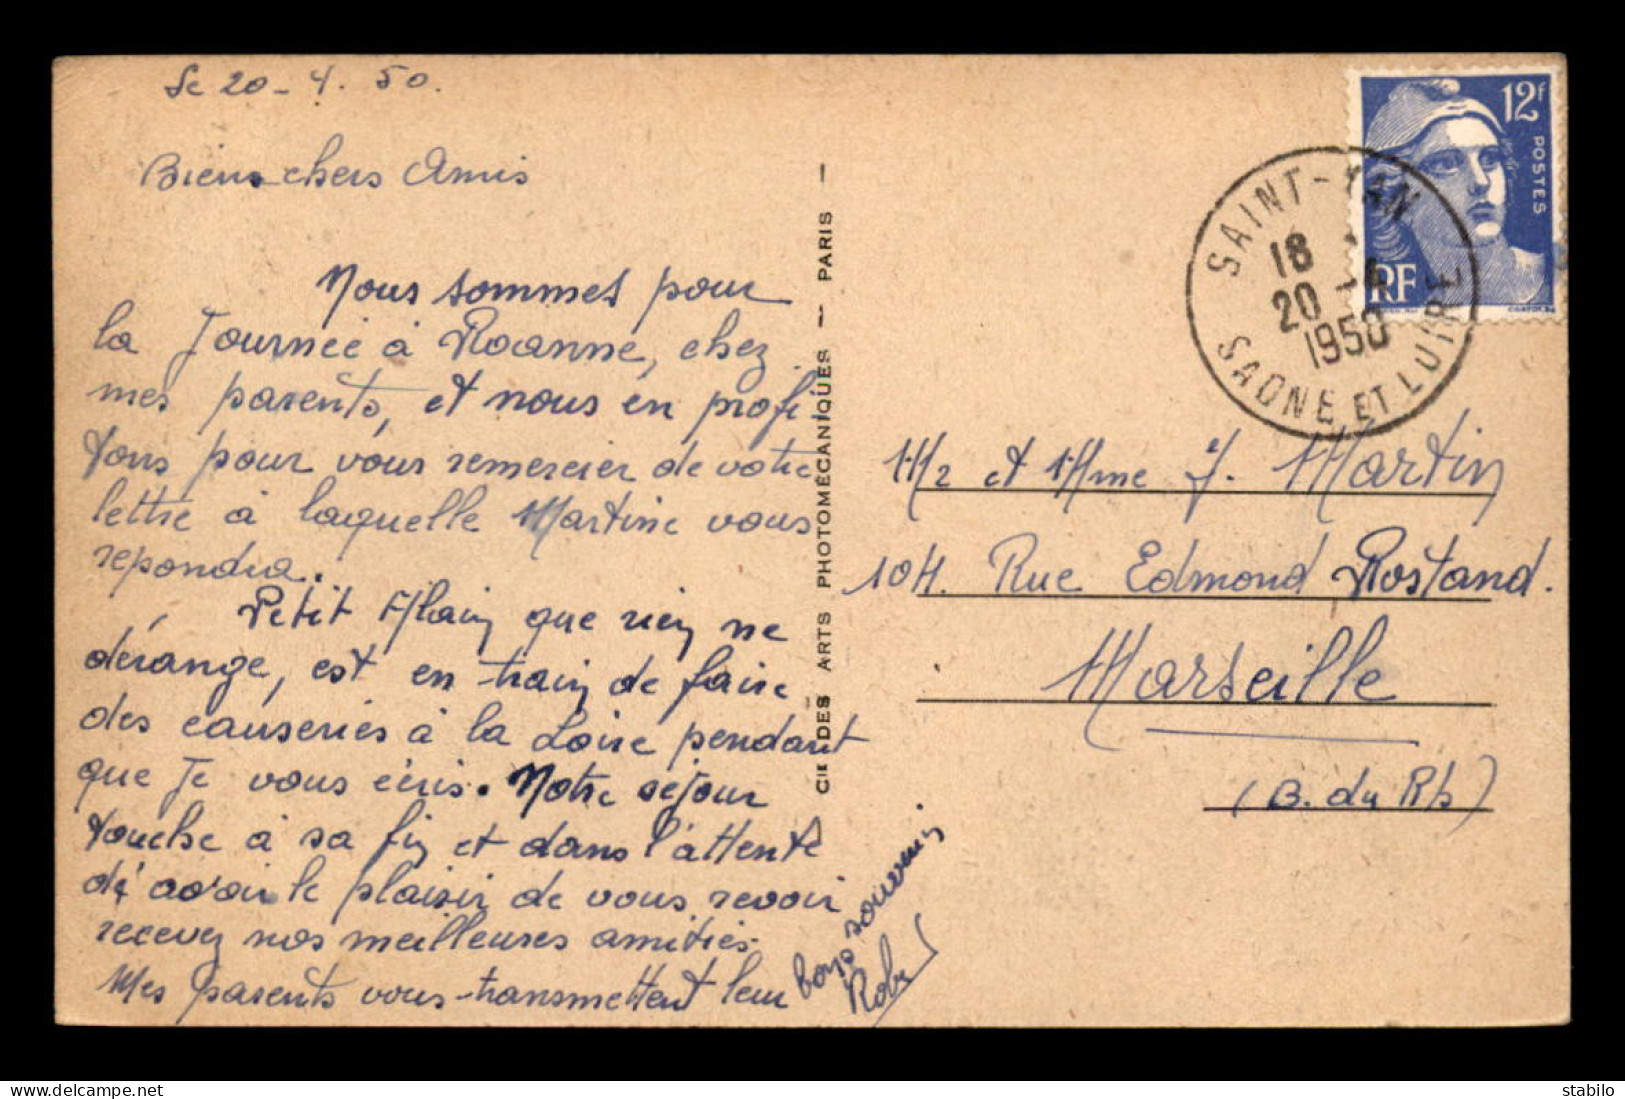 Le 20-4.50.
Biens chers Amis
Nous sommes pour
la Journée à Roanne, chez
mes parents, et nous en profi-
tons pour vous remercier de votre
lettre à laquelle Martine vous
repondra.
Petit Alain que rien ne
dérange, est en train de faire
des causeries à la Loire pendant
que Je vous écris. Notre séjour
touche à sa fin et dans l'attente
d'avoir le plaisir de vous revoir
recevez nos meilleures amitiés.
Mes parents vous transmettent leur
bons souvenis
CIE DES ARTS PHOTOMÉCANIQUES — PARIS —
12F
POSTES
RF
SAINT-YAN
18
20 -4
1950
SAONE ET LOIRE
Mr et Mme J. Martin
104. Rue Edmond Rostand.
Marseille
(B. du Rh)
www.delcampe.net
stabilo